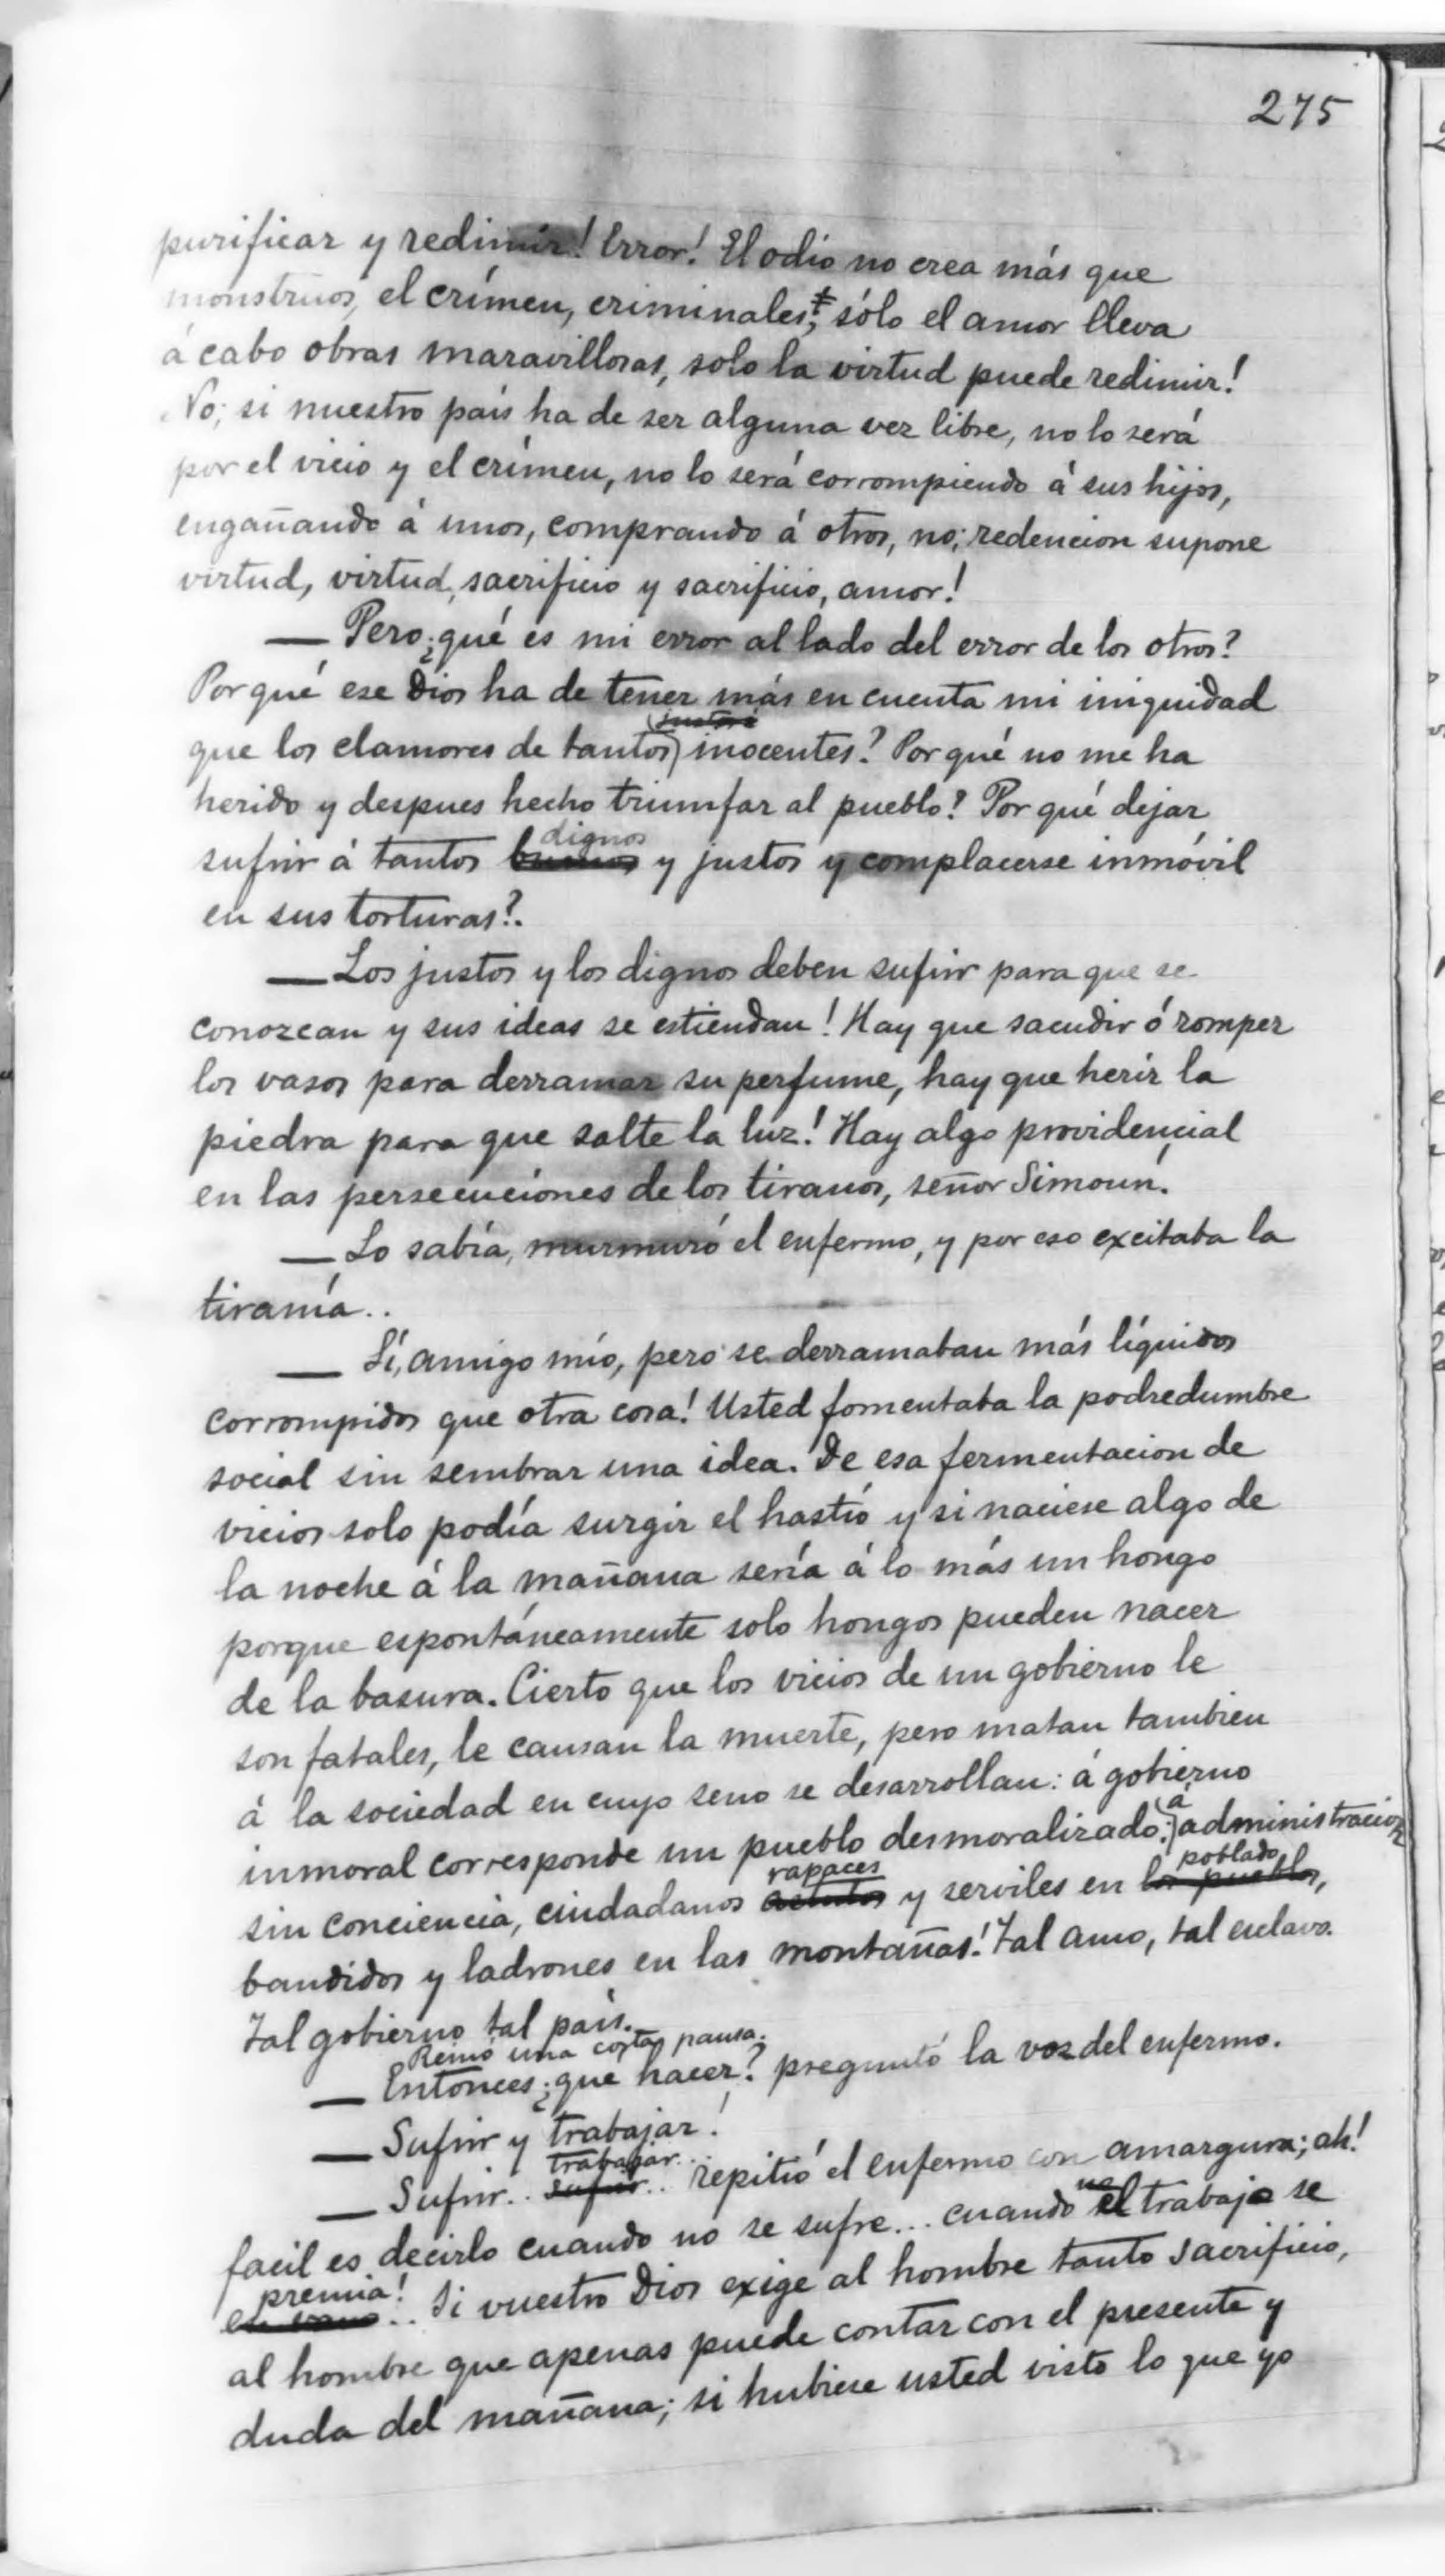 275
purificar y redimir! Error! El odio no crea más que
monstruos, el crímen, criminales; sólo el amor lleva
á cabo obras maravillosas, solo la virtud puede redimir!
No; si nuestro país ha de ser alguna vez libre, no lo será
por el vicio y el crímen, no lo será corrompiendo á sus hijos,
engañando á unos, comprando á otros, no; redencion supone
virtud, virtud, sacrificio y sacrificio, amor!
— Pero ¿qué es mi error al lado del error de los otros?
Por qué ese Dios ha de tener más en cuenta mi iniquidad
que los clamores de tantos inocentes? Por qué no me ha
herido y despues hecho triumfar al pueblo? Por qué dejar
dignos
sufrir á tantos buenos y justos y complacerse inmóvil
en sus torturas?.
— Los justos y los dignos deben sufrir para que se
conozcan y sus ideas se estiendan! Hay que sacudir ó romper
los vasos para derramar su perfume, hay que herir la
piedra para que salte la luz! Hay algo providencial
en las persecuciones de los tiranos, señor Simoun!
— Lo sabía, murmuró el enfermo, y por eso excitaba la
tiranía..
— Sí, amigo mío, pero se derramaban más líquidos
corrompidos que otra cosa! Usted fomentaba la podredumbre
social sin sembrar una idea. De esa fermentacion de
vicios solo podía surgir el hastío y si naciese algo de
la noche á la mañana sería á lo más un hongo
porque espontáneamente solo hongos pueden nacer
de la basura. Cierto que los vicios de un gobierno le
son fatales, le causan la muerte, pero matan tambien
á la sociedad en cuyo seno se desarrollan: á gobierno
á
inmoral corresponde un pueblo desmoralizado; administracion
rapaces poblado
sin conciencia, ciudadanos y serviles en los pueblos,
bandidos y ladrones en las montañas! Tal amo, tal esclavo.
Tal gobierno tal país.
Reinó una corta pausa.
— Entonces ¿que hacer? preguntó la voz del enfermo.
— Sufrir y trabajar!
trabajar..
— Sufrir.. sufrir.. repitió el enfermo con amargura; ah!
facil es decirlo cuando no se sufre... cuando el trabajo se
premia!
en vano.. Si vuestro Dios exige al hombre tanto sacrificio,
al hombre que apenas puede contar con el presente y
duda del mañana; si hubiese usted visto lo que yo